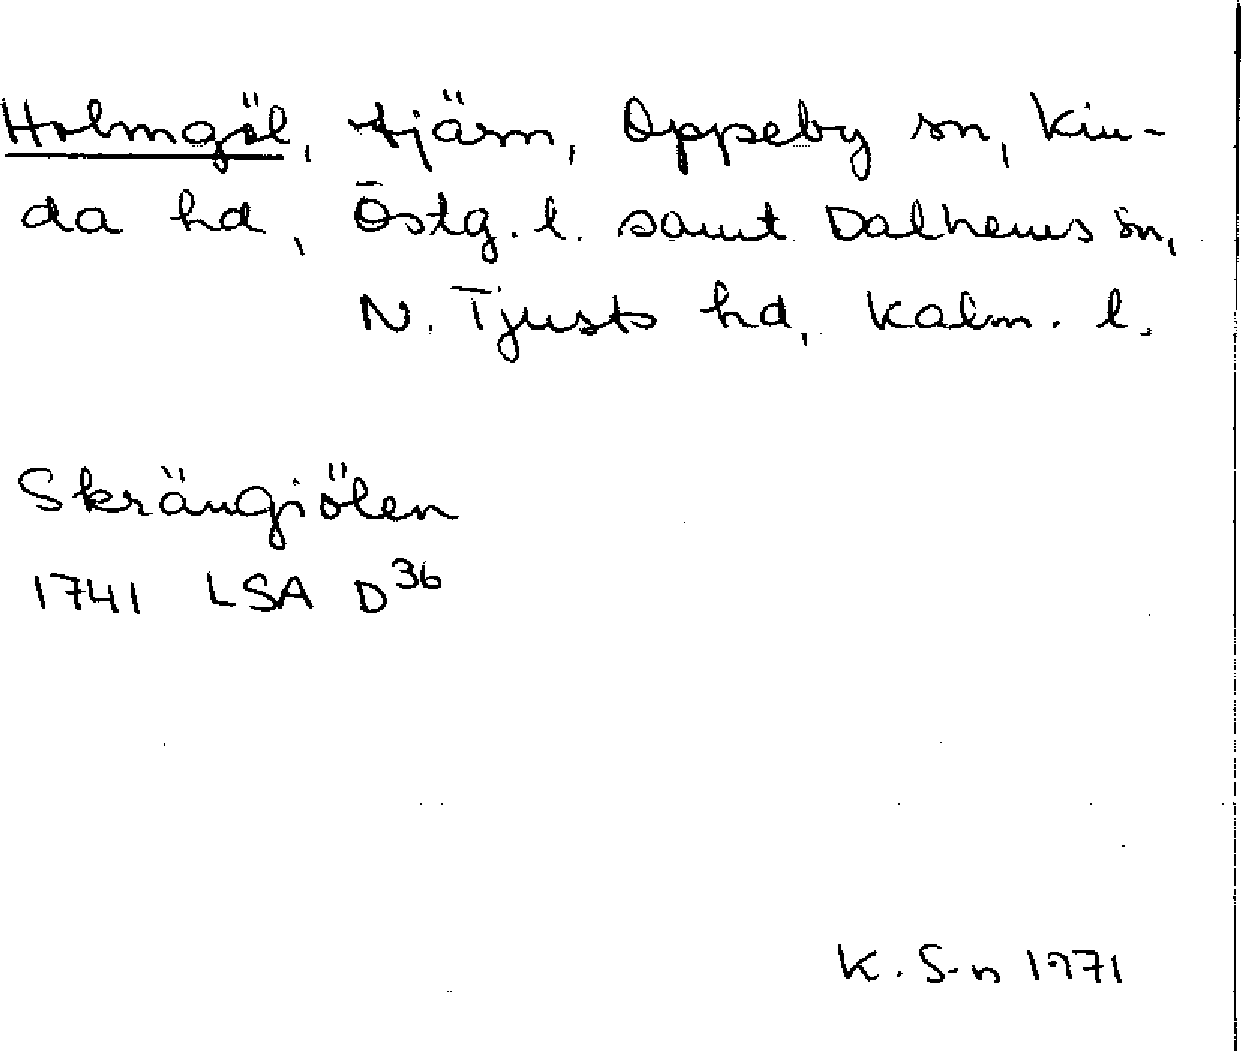 Holmgöl, tjärn, Oppeby sn, Kin-
da hd, Östg. l. samt Dalhems sn,
N. Tjusts hd, Kalm. l.
Skrängiölen
1741 LSA D36
K. S-n 1971